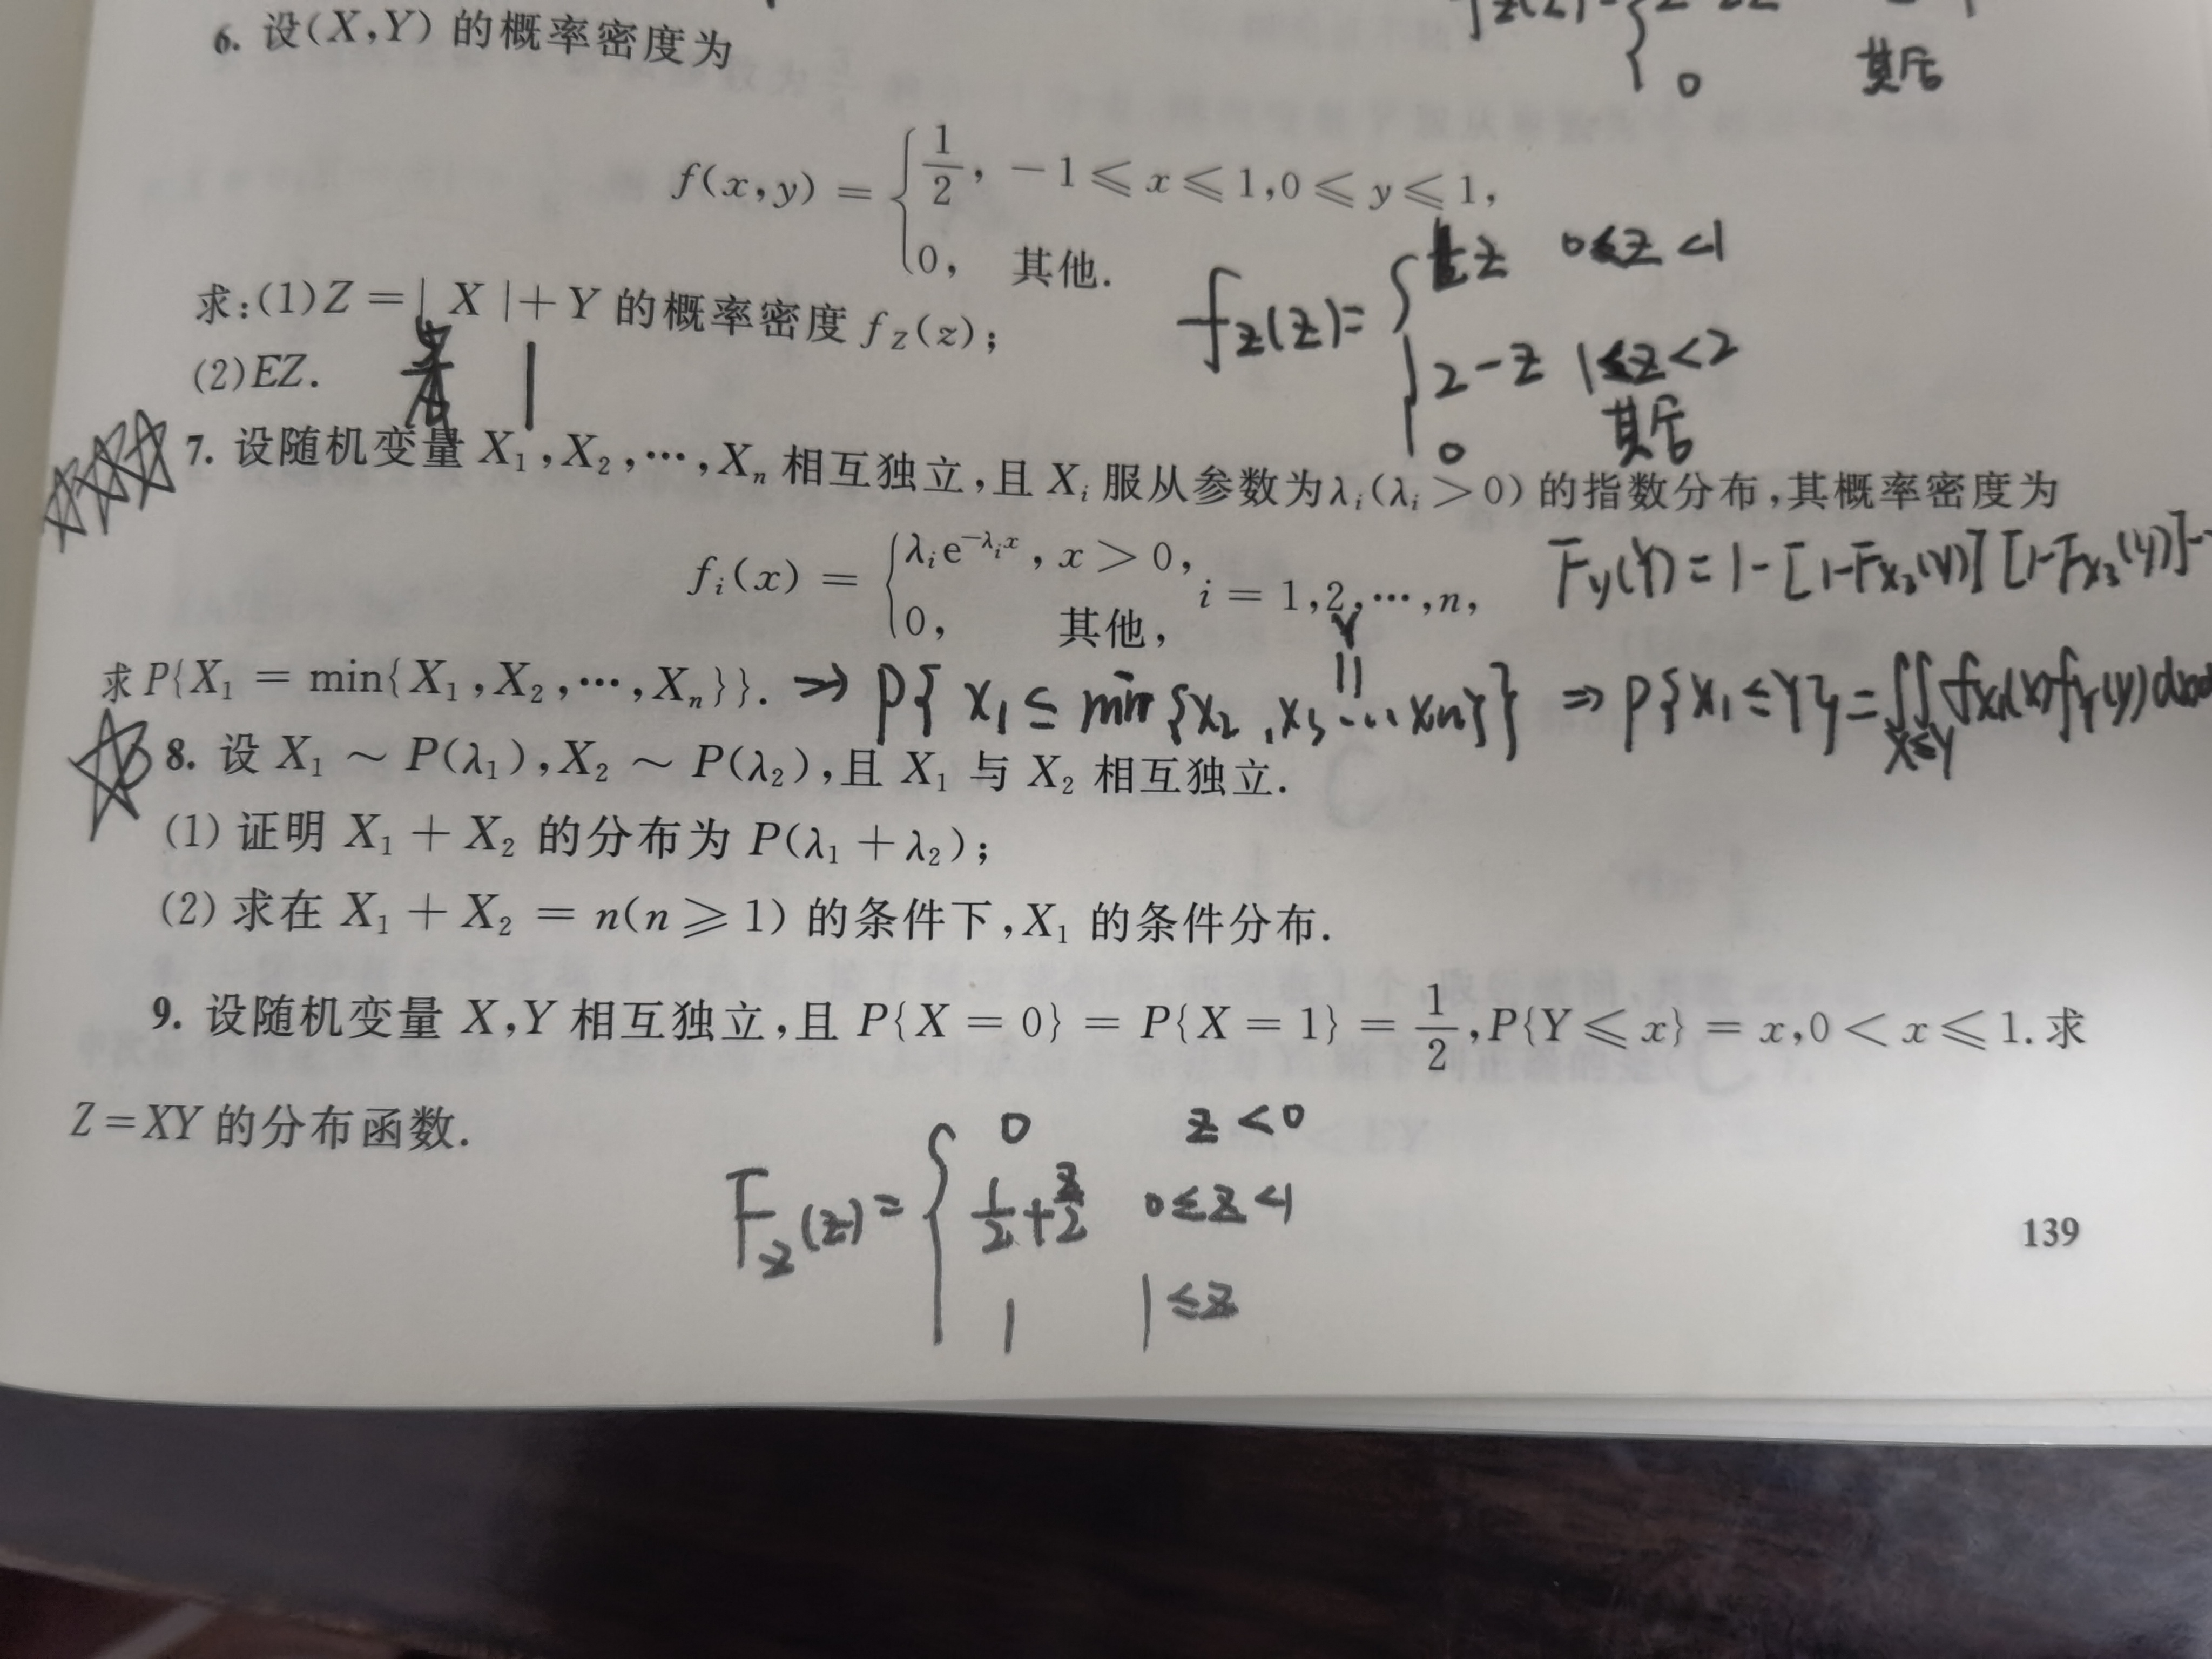 6. 设(X,Y) 的概率密度为
其后
0
f(x,y) = { 1/2, -1 ⩽ x ⩽ 1, 0 ⩽ y ⩽ 1,
0, 其他.
求:(1) Z = | X | + Y 的概率密度 f_Z(z);
(2) EZ.
1
f_Z(z) = { z 0≤z<1
2-z 1≤z<2
0 其后
7. 设随机变量 X₁,X₂,…,Xₙ 相互独立,且 Xᵢ 服从参数为λᵢ(λᵢ > 0) 的指数分布,其概率密度为
fᵢ(x) = { λᵢe^{-λᵢx}, x > 0,
0, 其他,
i = 1,2,…,n,
F_Y(Y) = 1-[1-F_{X₂}(y)][1-F_{X₃}(y)]
求 P{X₁ = min{X₁,X₂,…,Xₙ}}. ⇒ P{X₁ ≤ min{X₂,X₃…Xn}} ⇒ P{X₁≤Y} = ∬ f_{X₁}(x)f_Y(y)dxd
Y
X≤Y
8. 设 X₁ ~ P(λ₁),X₂ ~ P(λ₂),且 X₁ 与 X₂ 相互独立.
(1) 证明 X₁ + X₂ 的分布为 P(λ₁ + λ₂);
(2) 求在 X₁ + X₂ = n(n ⩾ 1) 的条件下,X₁ 的条件分布.
9. 设随机变量 X,Y 相互独立,且 P{X = 0} = P{X = 1} = 1/2, P{Y ⩽ x} = x, 0 < x ⩽ 1. 求
Z = XY 的分布函数.
F_Z(z) = { 0 z<0
1/2+z/2 0≤z<1
1 1≤z
139